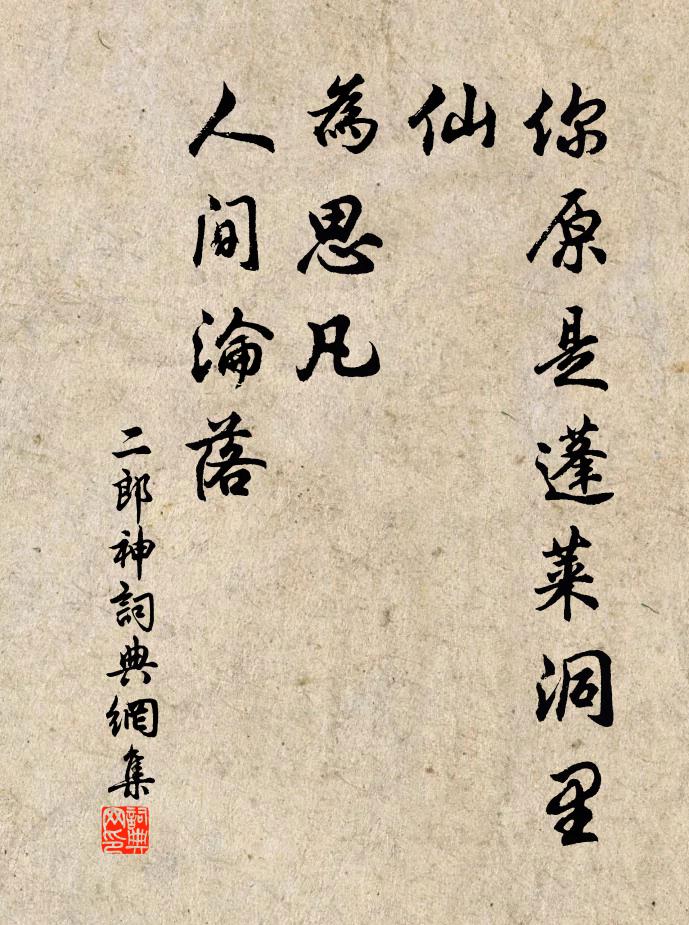 你原是蓬莱洞里
仙
為思凡
人间淪落
二郎神詞典網集
詞典
网印